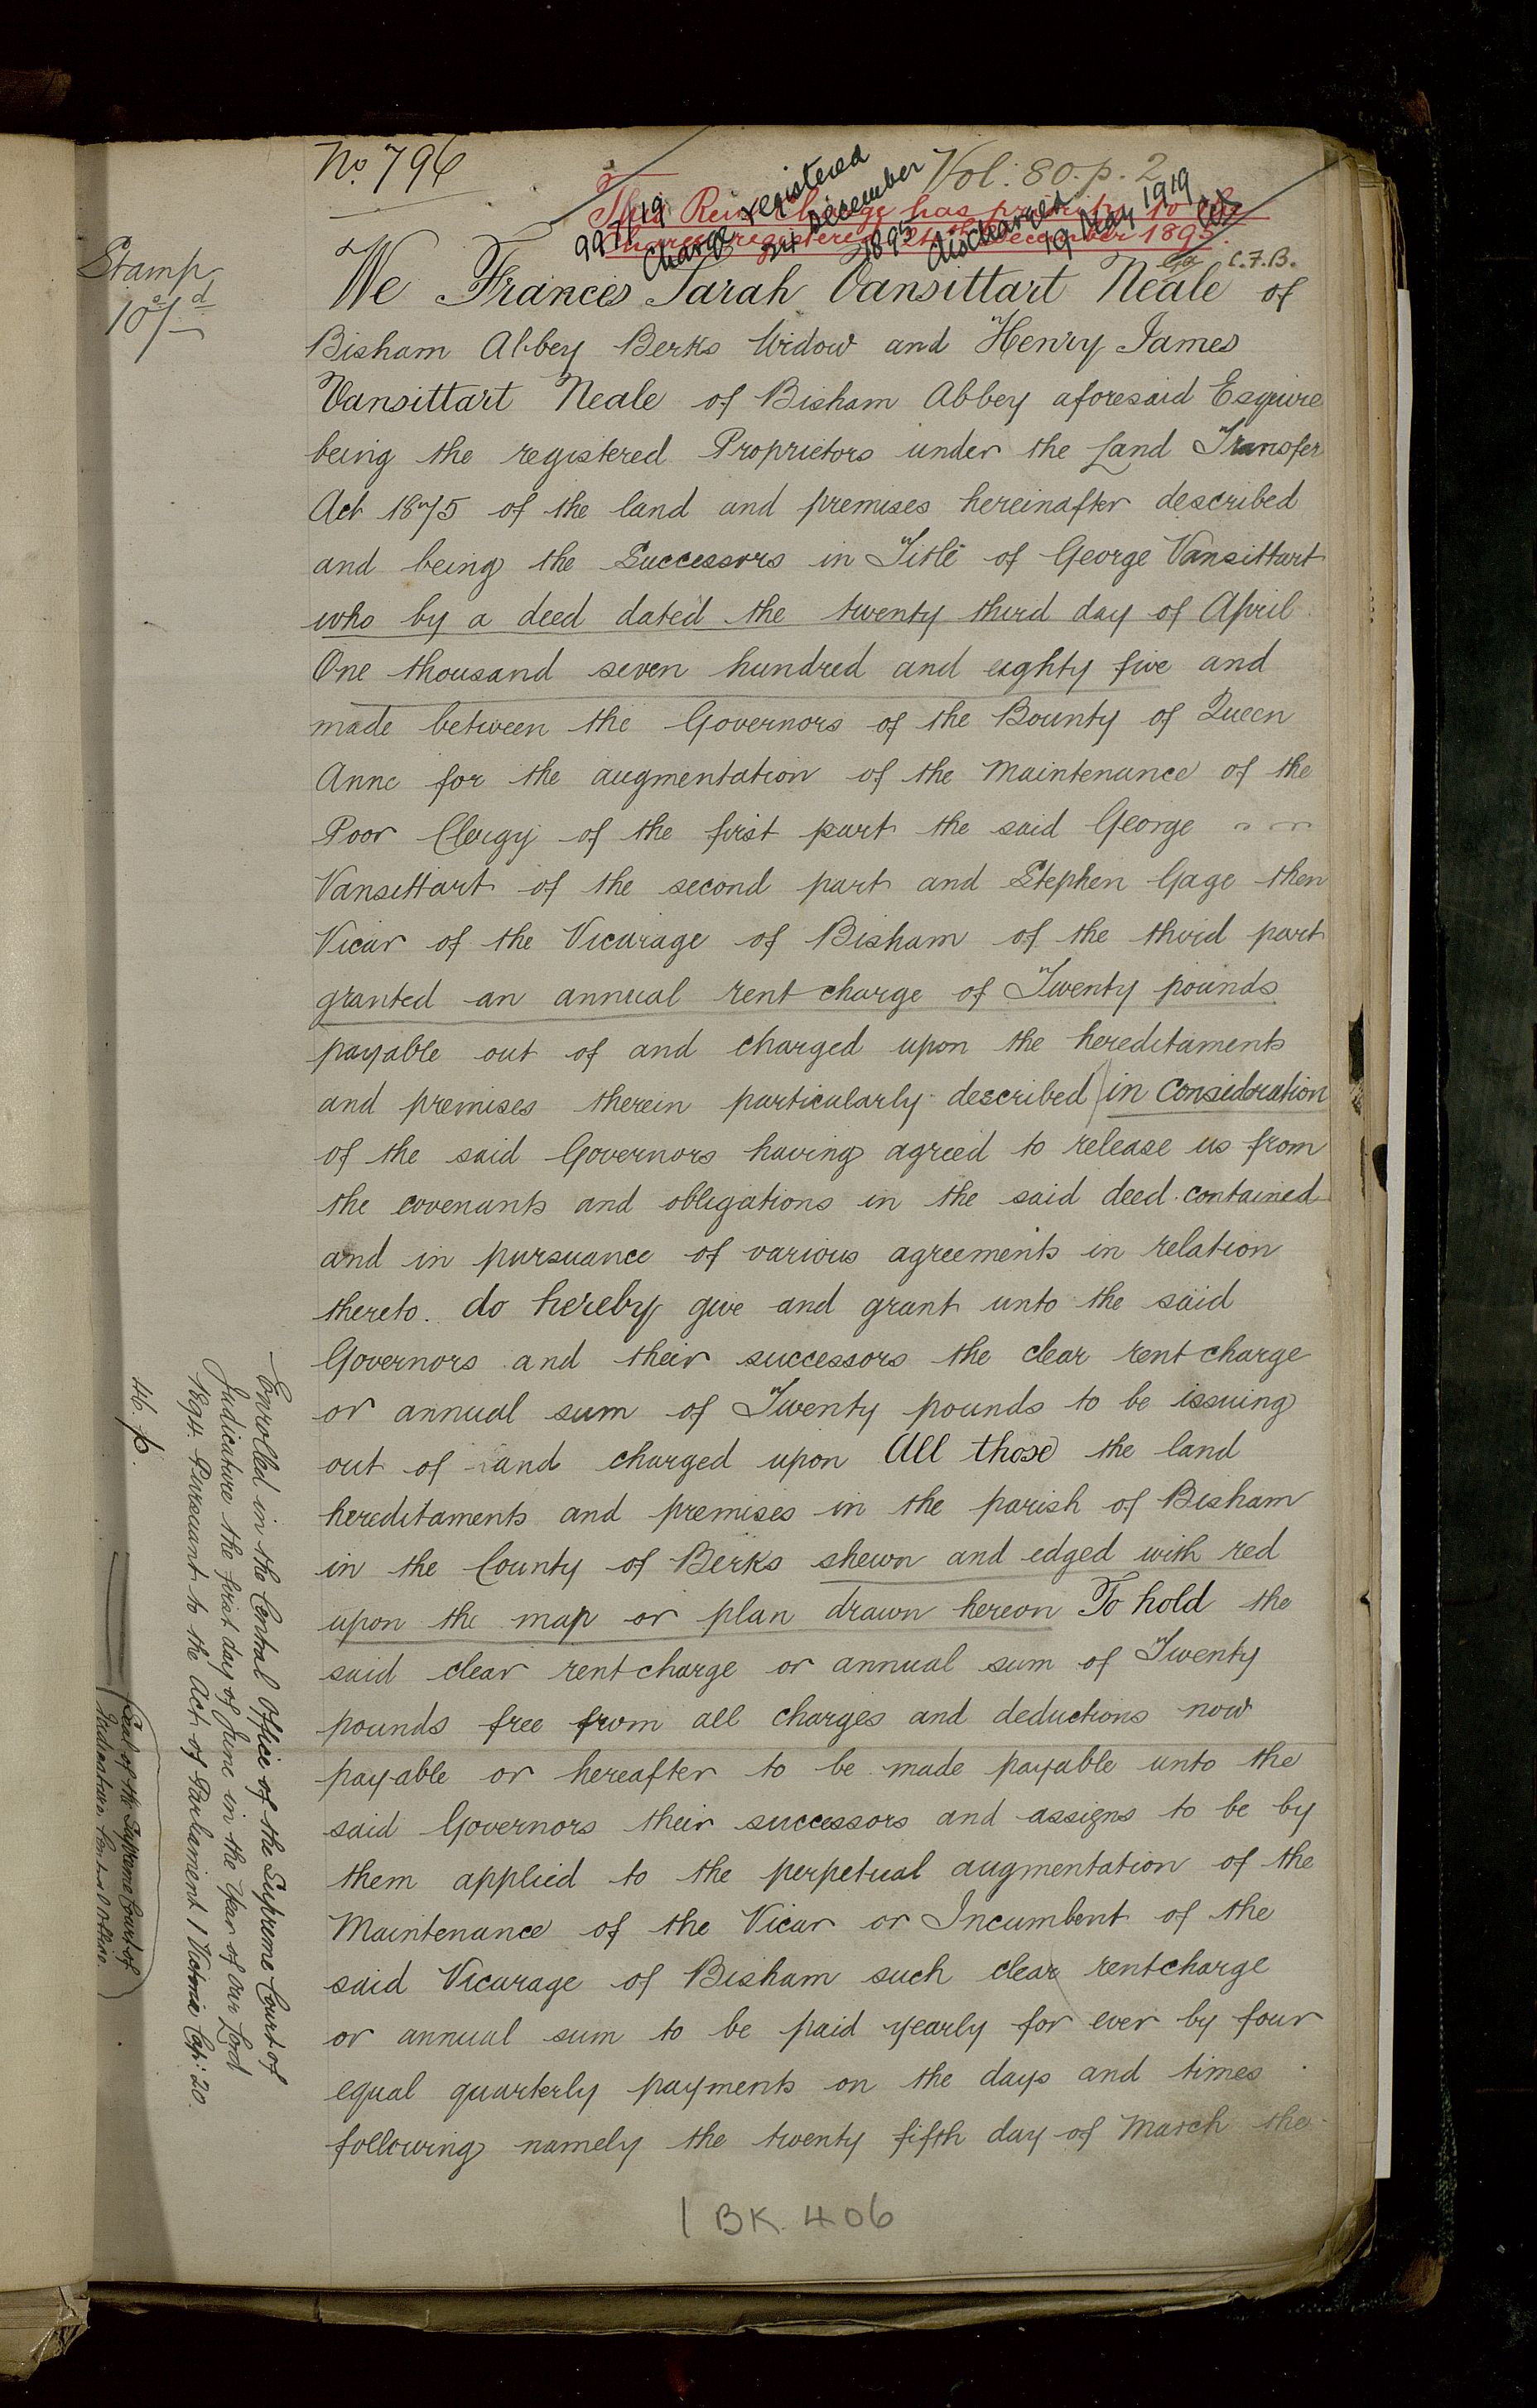 No. 796
Vol: 80. p. 2
This Rent Charge has priority to the
Charge registered 24th December 1895.
997/19
Charge registered
24 December
1895
discharged
19 May 1919
C.F.B.
Stamp
10s/-d
We Frances Sarah Vansittart Neale of
Bisham Abbey Berks Widow and Henry James
Vansittart Neale of Bisham Abbey aforesaid Esquire
being the registered Proprietors under the Land Transfer
Act 1875 of the land and premises hereinafter described
and being the Successors in Title of George Vansittart
who by a deed dated the twenty third day of April
One thousand seven hundred and eighty five and
made between the Governors of the Bounty of Queen
Anne for the augmentation of the Maintenance of the
Poor Clergy of the first part the said George
Vansittart of the second part and Stephen Gage then
Vicar of the Vicarage of Bisham of the third part
granted an annual rent charge of Twenty pounds
payable out of and charged upon the hereditaments
and premises therein particularly described in consideration
of the said Governors having agreed to release us from
the covenants and obligations in the said deed contained
and in pursuance of various agreements in relation
thereto. do hereby give and grant unto the said
Governors and their successors the clear rent charge
or annual sum of Twenty pounds to be issuing
out of and charged upon All those the land
hereditaments and premises in the parish of Bisham
in the County of Berks shewn and edged with red
upon the map or plan drawn hereon To hold the
said clear rentcharge or annual sum of Twenty
pounds free from all charges and deductions now
payable or hereafter to be made payable unto the
said Governors their successors and assigns to be by
them applied to the perpetual augmentation of the
Maintenance of the Vicar or Incumbent of the
said Vicarage of Bisham such clear rentcharge
or annual sum to be paid yearly for ever by four
equal quarterly payments on the days and times
following namely the twenty fifth day of March the
Enrolled in the Central Office of the Supreme Court of
Judicature the first day of June in the Year of Our Lord
1894. Pursuant to the Act of Parliament 1 Victoria Cap: 20.
46. p.
Seal of the Supreme Court of
Judicature. Central Office.
1 BK 406